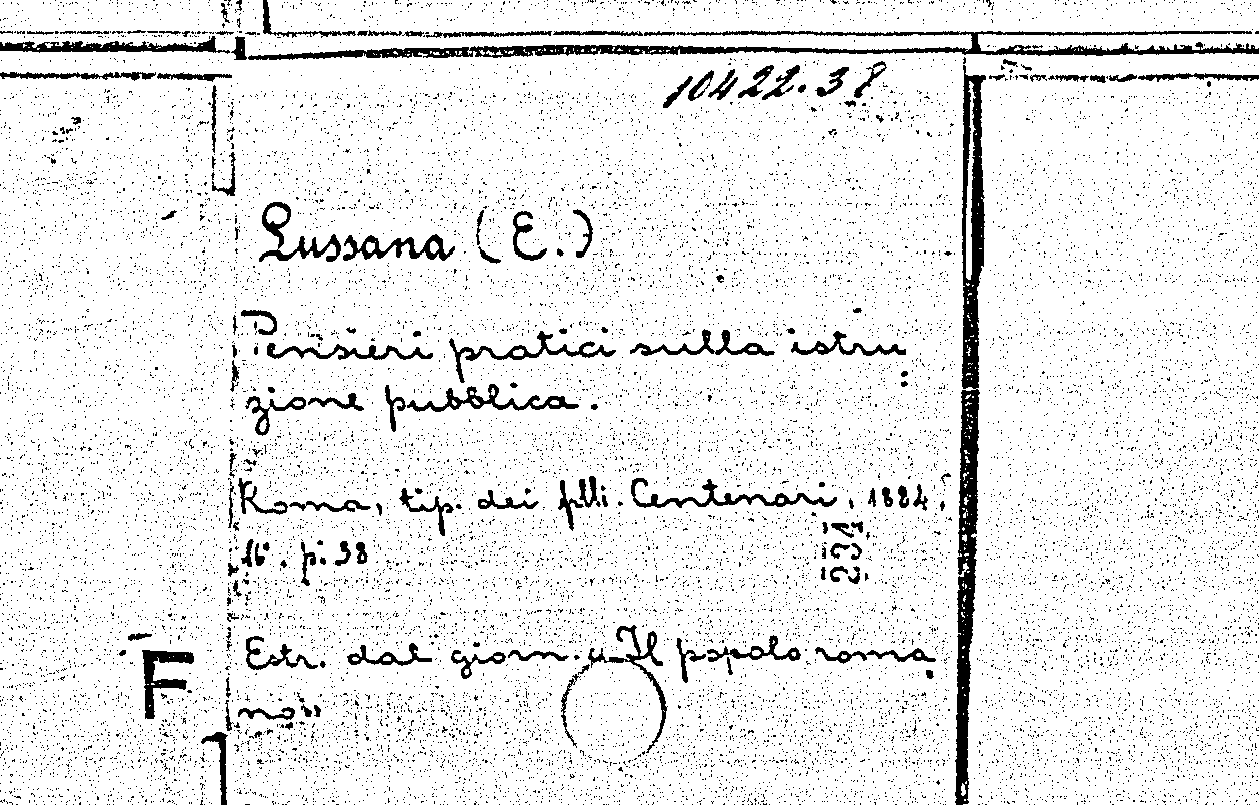 10422.38
Lussana (E.)
Pensieri pratici sulla istru
zione pubblica.
Roma, tip. dei flli. Centenari, 1884.
16°. p. 38
231
Estr. dal giorn. «Il popolo roma
no»
F